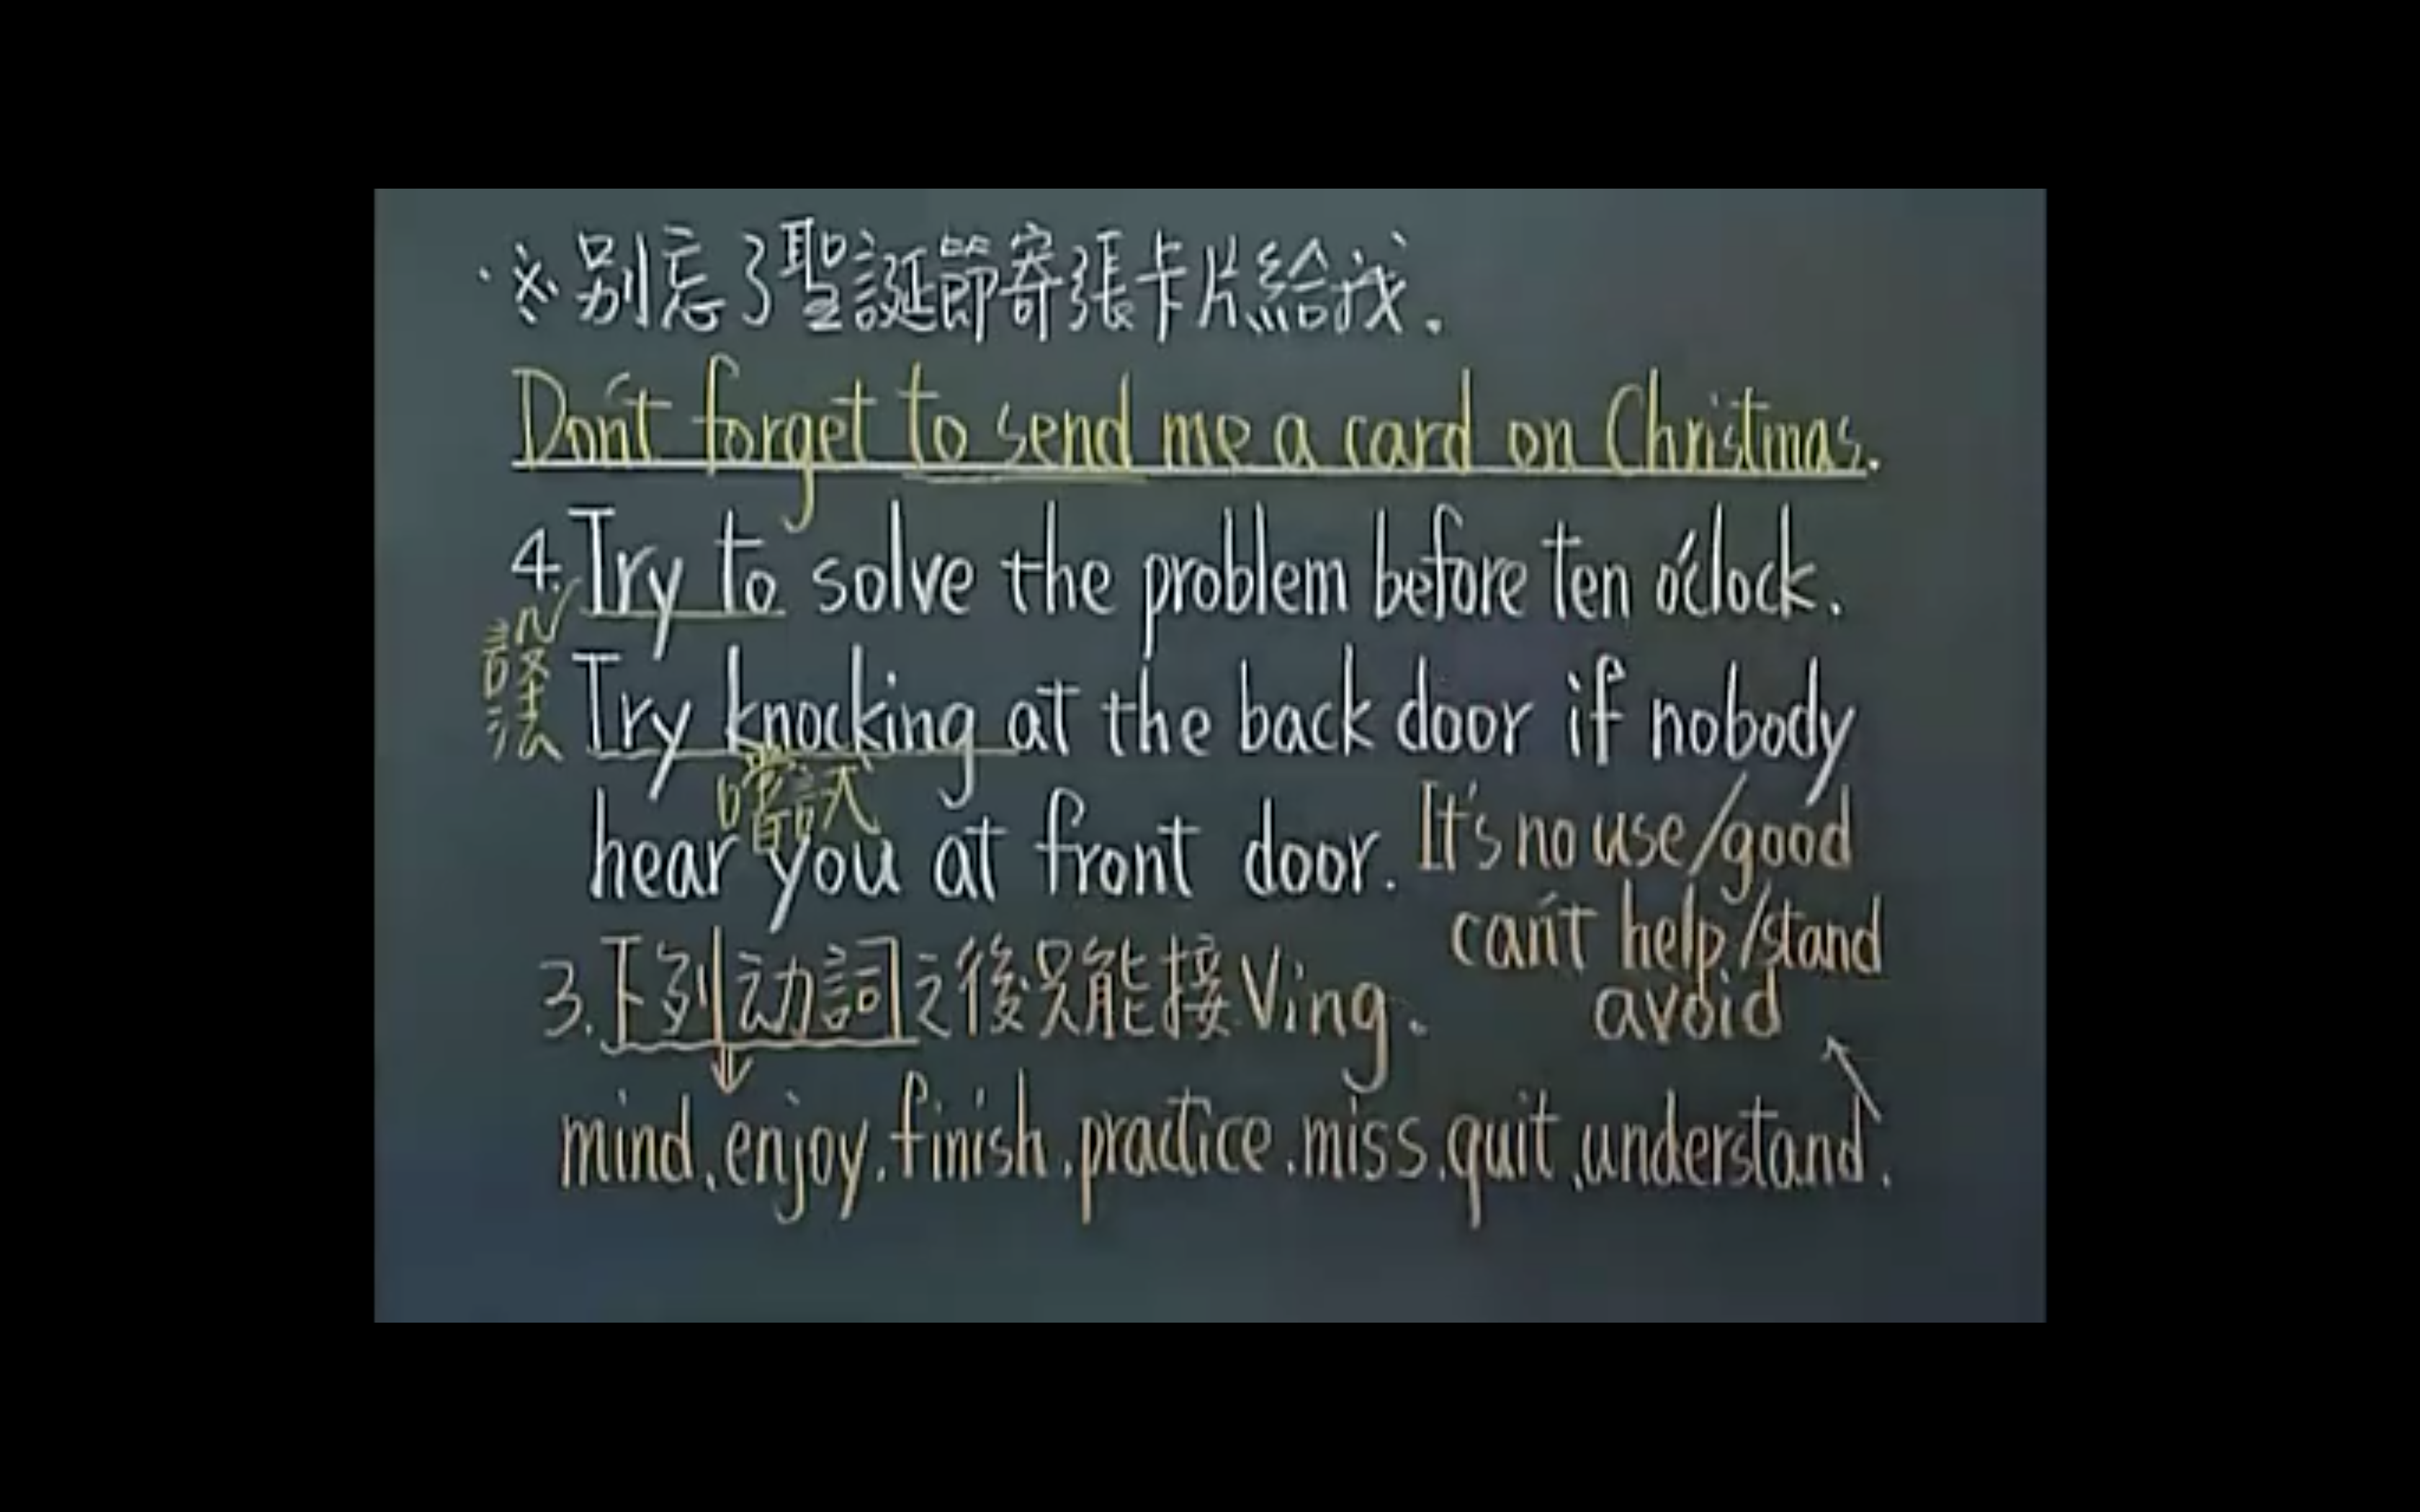 ※別忘了聖誕節寄張卡片給我.
Don't forget to send me a card on Christmas.
4. Try to solve the problem before ten o'clock.
設法
Try knocking at the back door if nobody
嚐試
hear you at front door.
It's no use/good
can't help/stand
avoid
3.下列动詞之後只能接Ving.
mind.enjoy.finish.practice.miss.quit.understand.